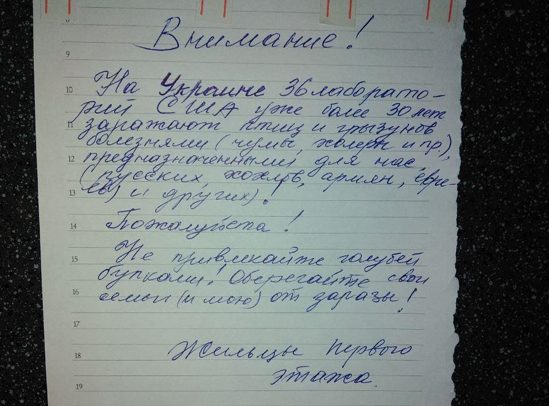 9
Внимание!
10 На Украине 36 лаборато-
рий США уже более 30 лет
11 заражают птиц и грызунов
болезнями (чумы, холеры и пр),
12 предназначенными для нас
(русских, хохлов, армян, евре-
13 ев) и других).
14 Пожалуйста!
15 Не привлекайте голубей
булками! Оберегайте свои
16 семьи (и мою) от заразы!
17
18 Жильцы первого
19 этажа.